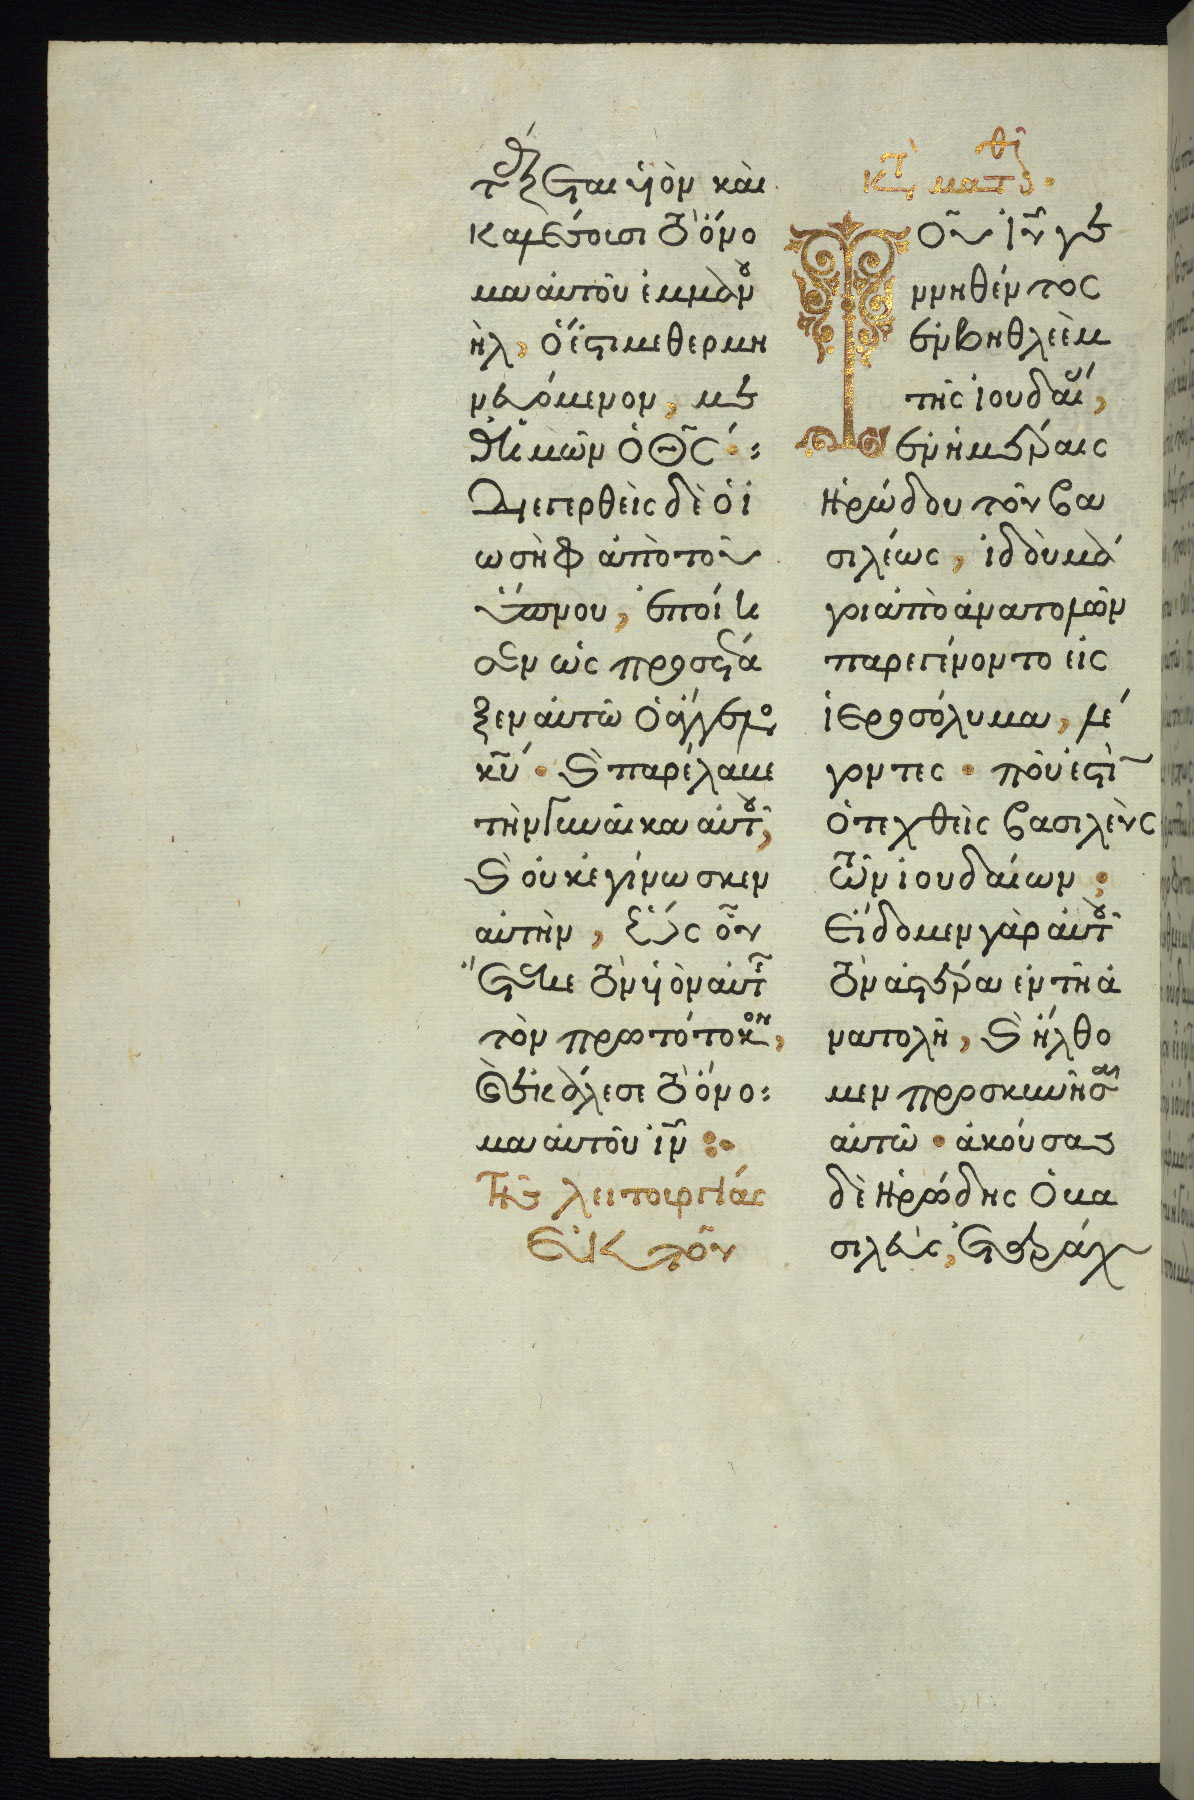 τέξεται υἱὸν καὶ
καλέσουσι τὸ ὄνο
μα αὐτοῦ ἐμμανου
ὴλ, ὅ ἐστι μεθερμη
νευόμενον, με
θ' ἡμῶν ὁ Θς̅ :
Διεγερθεὶς δὲ ὁ ἰ
ωσὴφ ἀπὸ τοῦ
ὕπνου, ἐποίη
σεν ὡς προσέτα
ξεν αὐτῶ ὁ ἄγγελος
κυ̅ · καὶ παρέλαβε
τὴν γυναῖκα αὐτοῦ,
καὶ οὐκ ἐγίνωσκεν
αὐτὴν, ἕως οὗ
ἔτεκε τὸν υἱὸν αὐτῆς
τὸν πρωτότοκον,
καὶ ἐκάλεσε τὸ ὄνο
μα αὐτοῦ ιν̅ :·
Τῆς λειτουργίας
ἐκ τοῦ
κατὰ ματθαῖον.
Τοῦ ιυ̅ γε
ννηθέντος
ἐν βηθλεὲμ
τῆς ἰουδαίας,
ἐν ἡμέραις
Ἡρώδου τοῦ βα
σιλέως, ἰδοὺ μά
γοι ἀπὸ ἀνατολῶν
παρεγένοντο εἰς
ἱεροσόλυμα, λέ
γοντες · ποῦ ἐστὶν
ὁ τεχθεὶς βασιλεὺς
τῶν ἰουδαίων ;
Εἴδομεν γὰρ αὐτοῦ
τὸν ἀστέρα ἐν τῆ ἀ
νατολῆ, καὶ ἤλθο
μεν προσκυνῆσαι
αὐτῶ · ἀκούσας
δὲ Ἡρώδης ὁ βα
σιλεὺς, ἐταράχ